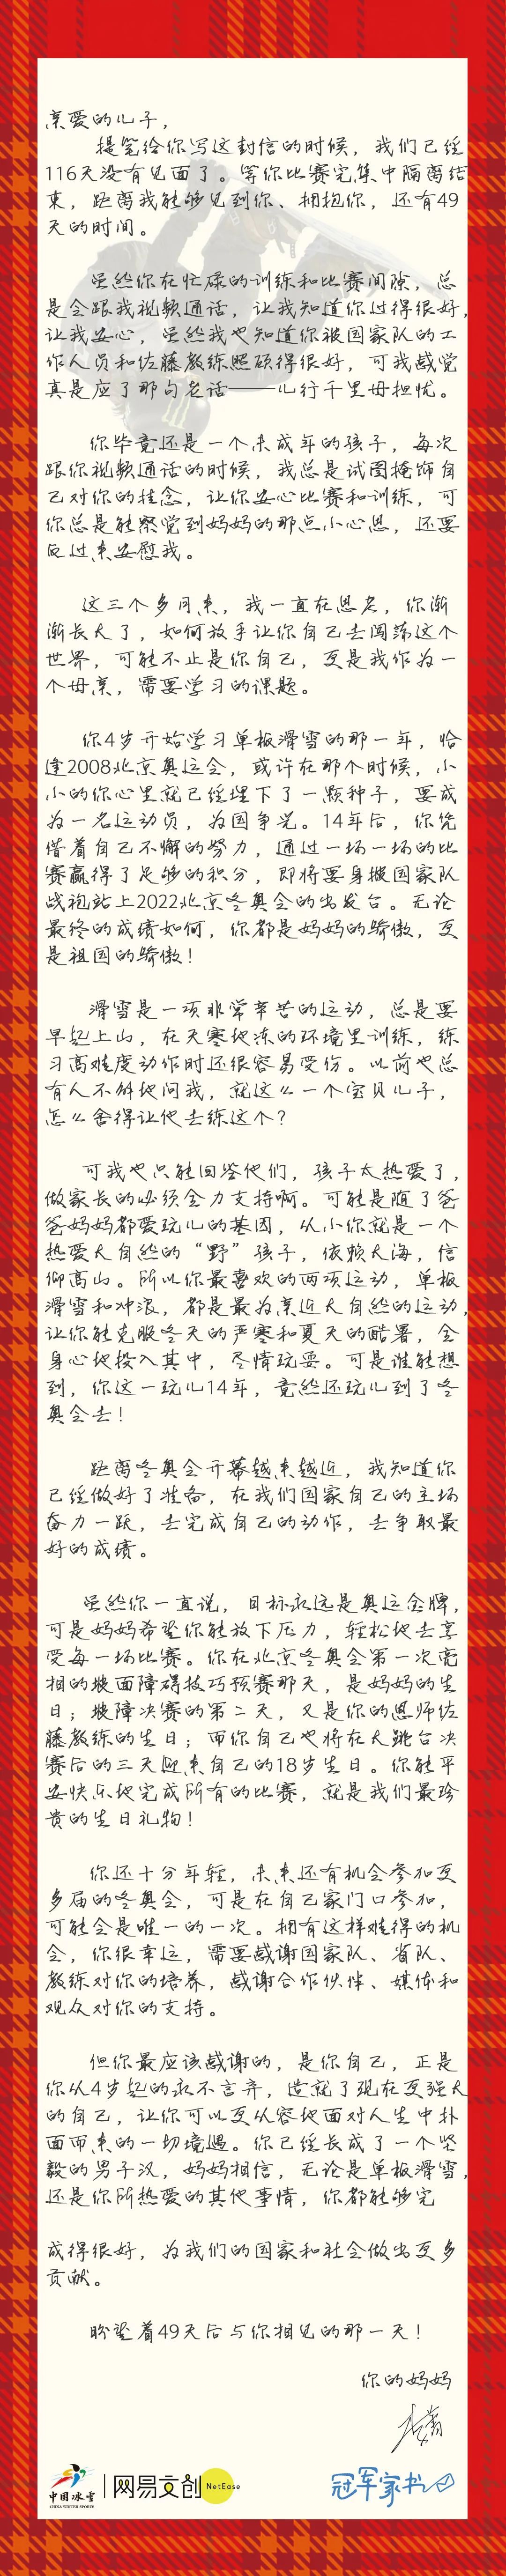 亲爱的儿子，
提笔给你写这封信的时候，我们已经
116天没有见面了。等你比赛完集中隔离结
束，距离我能够见到你、拥抱你，还有49
天的时间。
虽然你在忙碌的训练和比赛间隙，总
是会跟我视频通话，让我知道你过得很好，
让我安心，虽然我也知道你被国家队的工
作人员和佐藤教练照顾得很好，可我感觉
真是应了那句老话——儿行千里母担忧。
你毕竟还是一个未成年的孩子，每次
跟你视频通话的时候，我总是试图掩饰自
己对你的挂念，让你安心比赛和训练，可
你总是能察觉到妈妈的那点小心思，还要
反过来安慰我。
这三个多月来，我一直在思考，你渐
渐长大了，如何放手让你自己去闯荡这个
世界，可能不止是你自己，更是我作为一
个母亲，需要学习的课题。
你4岁开始学习单板滑雪的那一年，恰
逢2008北京奥运会，或许在那个时候，小
小的你心里就已经埋下了一颗种子，要成
为一名运动员，为国争光。14年后，你凭
借着自己不懈的努力，通过一场一场的比
赛赢得了足够的积分，即将要身披国家队
战袍站上2022北京冬奥会的出发台。无论
最终的成绩如何，你都是妈妈的骄傲，更
是祖国的骄傲！
滑雪是一项非常辛苦的运动，总是要
早起上山，在天寒地冻的环境里训练，练
习高难度动作时还很容易受伤。以前也总
有人不解地问我，就这么一个宝贝儿子，
怎么舍得让他去练这个？
可我也只能回答他们，孩子太热爱了，
做家长的必须全力支持啊。可能是随了爸
爸妈妈都爱玩儿的基因，从小你就是一个
热爱大自然的“野”孩子，依赖大海，信
仰高山。所以你最喜欢的两项运动，单板
滑雪和冲浪，都是最为亲近大自然的运动，
让你能克服冬天的严寒和夏天的酷暑，全
身心地投入其中，尽情玩耍。可是谁能想
到，你这一玩儿14年，竟然还玩儿到了冬
奥会去！
距离冬奥会开幕越来越近，我知道你
已经做好了准备，在我们国家自己的主场
奋力一跃，去完成自己的动作，去争取最
好的成绩。
虽然你一直说，目标永远是奥运金牌，
可是妈妈希望你能放下压力，轻松地去享
受每一场比赛。你在北京冬奥会第一次亮
相的坡面障碍技巧预赛那天，是妈妈的生
日；坡障决赛的第二天，又是你的恩师佐
藤教练的生日；而你自己也将在大跳台决
赛后的三天迎来自己的18岁生日。你能平
安快乐地完成所有的比赛，就是我们最珍
贵的生日礼物！
你还十分年轻，未来还有机会参加更
多届的冬奥会，可是在自己家门口参加，
可能会是唯一的一次。拥有这样难得的机
会，你很幸运，需要感谢国家队、省队、
教练对你的培养，感谢合作伙伴、媒体和
观众对你的支持。
但你最应该感谢的，是你自己，正是
你从4岁起的永不言弃，造就了现在更强大
的自己，让你可以更从容地面对人生中扑
面而来的一切境遇。你已经长成了一个坚
毅的男子汉，妈妈相信，无论是单板滑雪，
还是你所热爱的其他事情，你都能够完
成得很好，为我们的国家和社会做出更多
贡献。
盼望着49天后与你相见的那一天！
你的妈妈
中国冰雪
CHINA WINTER SPORTS
网易文创
NetEase
冠军家书